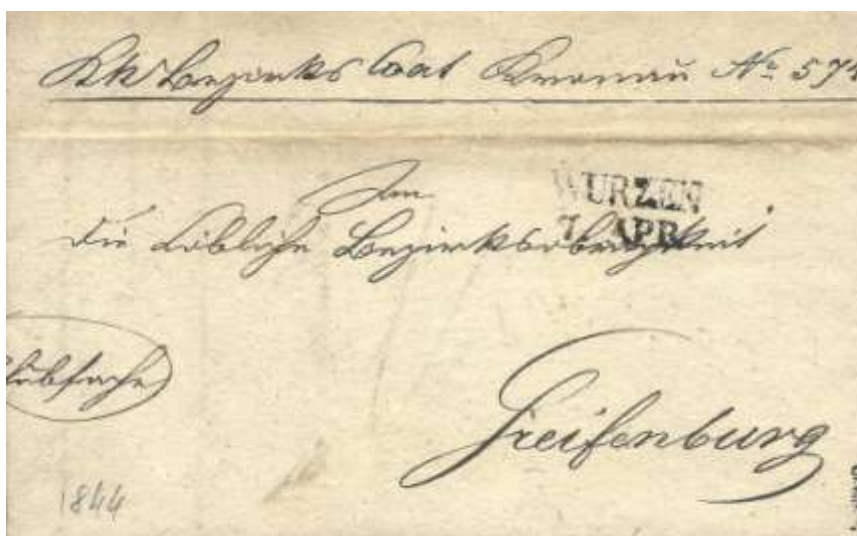 KK Bezirks Coat Kronau No 574
An
WURZEN
7. APR.
die Löbliche Bezirksobrigkeit
Greifenburg
1844